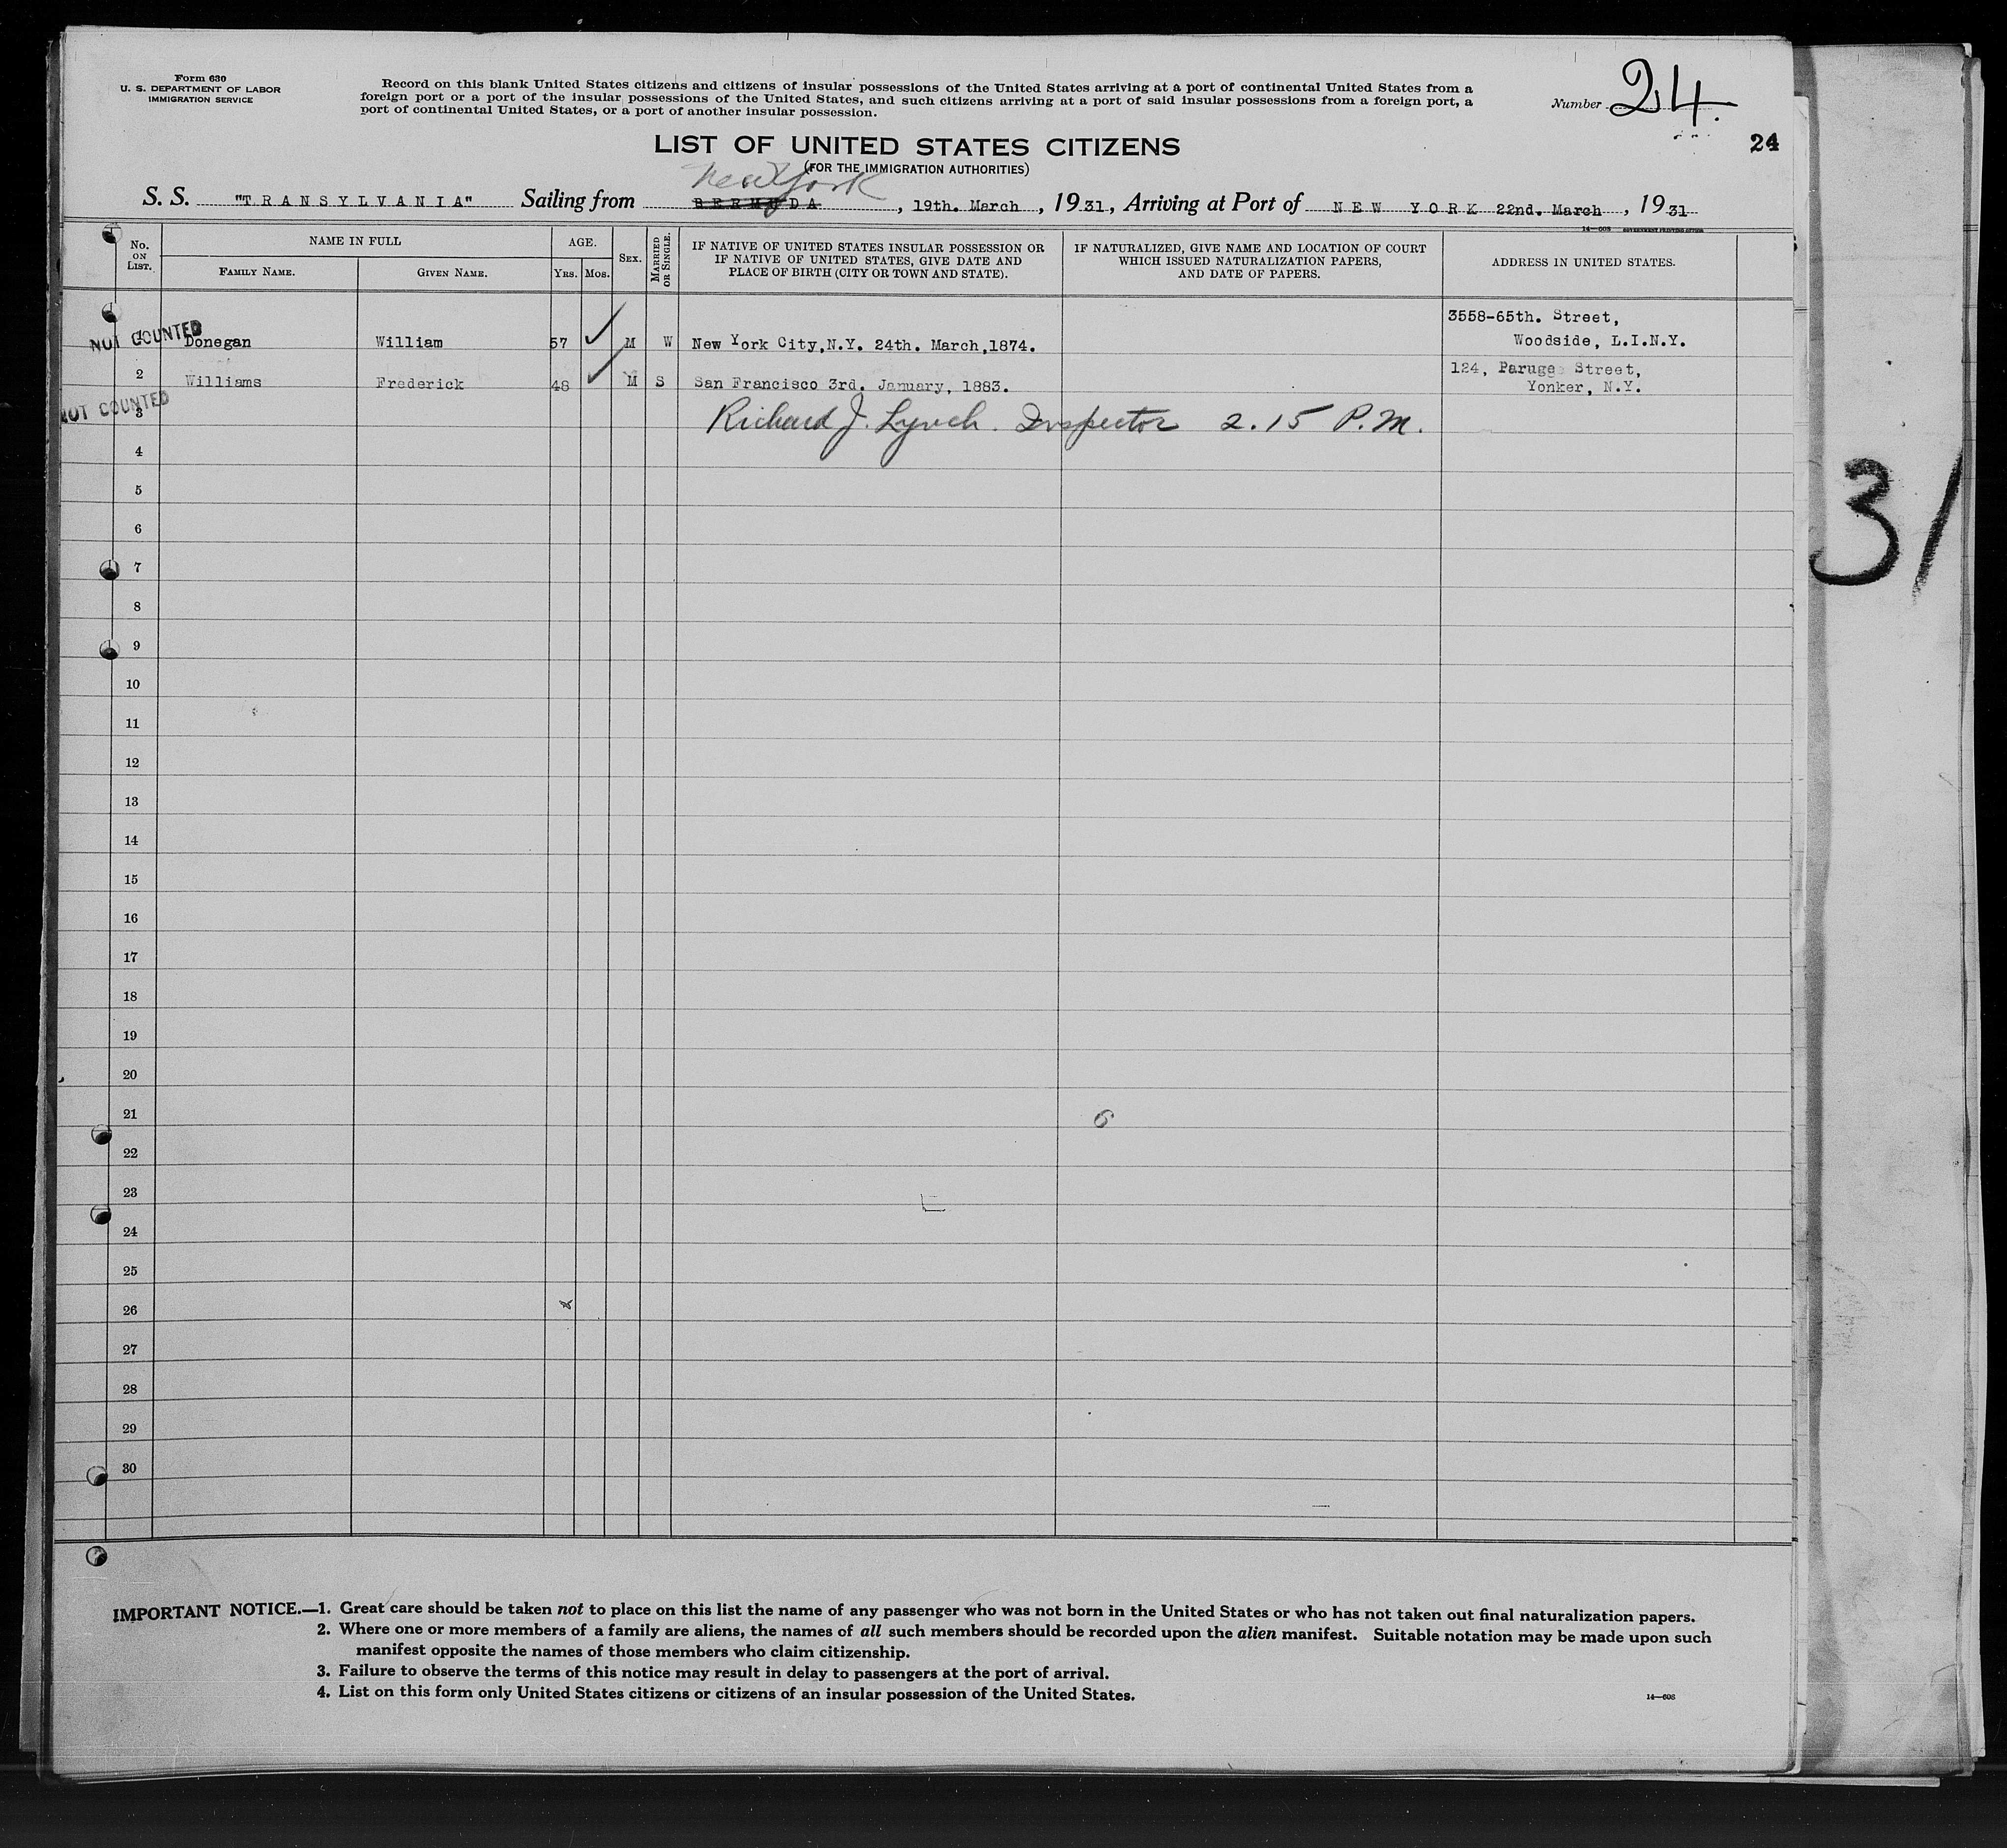 Form 630
U. S. DEPARTMENT OF LABOR
IMMIGRATION SERVICE
Record on this blank United States citizens and citizens of insular possessions of the United States arriving at a port of continental United States from a
foreign port or a port of the insular possessions of the United States, and such citizens arriving at a port of said insular possessions from a foreign port, a
port of continental United States, or a port of another insular possession.
Number 24.
24
LIST OF UNITED STATES CITIZENS
(FOR THE IMMIGRATION AUTHORITIES)
New York
S. S. "TRANSYLVANIA" Sailing from BERMUDA, 19th. March, 1931, Arriving at Port of NEW YORK 22nd. March, 1931
14—608 GOVERNMENT PRINTING OFFICE
No. ON LIST.
NAME IN FULL
FAMILY NAME.
GIVEN NAME.
AGE.
YRS.
MOS.
SEX.
MARRIED OR SINGLE.
IF NATIVE OF UNITED STATES INSULAR POSSESSION OR
IF NATIVE OF UNITED STATES, GIVE DATE AND
PLACE OF BIRTH (CITY OR TOWN AND STATE).
IF NATURALIZED, GIVE NAME AND LOCATION OF COURT
WHICH ISSUED NATURALIZATION PAPERS,
AND DATE OF PAPERS.
ADDRESS IN UNITED STATES.
3558-65th. Street,
NOT COUNTED
1 Donegan William 57 M W New York City,N.Y. 24th. March,1874. Woodside, L.I.N.Y.
124, Paruge Street,
2 Williams Frederick 48 M S San Francisco 3rd. January, 1883. Yonker, N.Y.
NOT COUNTED
3 Richard J. Lynch. Inspector 2.15 P.M.
4
5
6
7
8
9
10
11
12
13
14
15
16
17
18
19
20
21 6
22
23
24
25
26
27
28
29
30
31
IMPORTANT NOTICE.—1. Great care should be taken not to place on this list the name of any passenger who was not born in the United States or who has not taken out final naturalization papers.
2. Where one or more members of a family are aliens, the names of all such members should be recorded upon the alien manifest. Suitable notation may be made upon such
manifest opposite the names of those members who claim citizenship.
3. Failure to observe the terms of this notice may result in delay to passengers at the port of arrival.
4. List on this form only United States citizens or citizens of an insular possession of the United States.
14—608